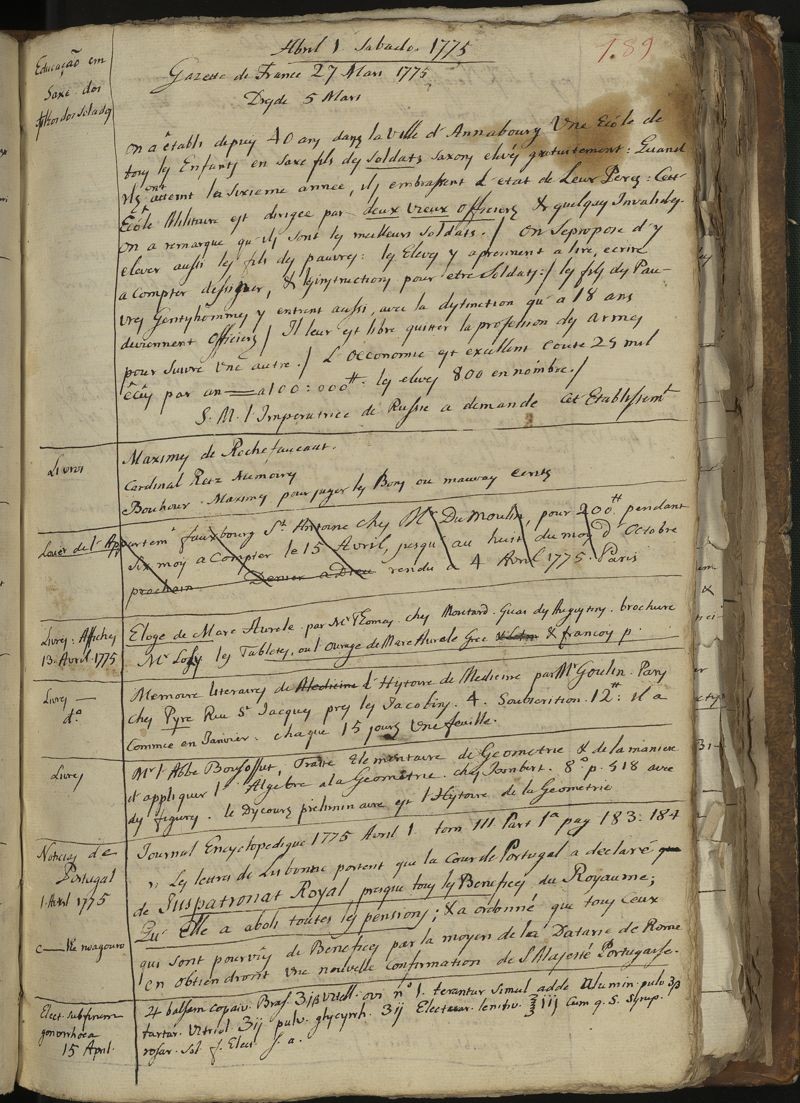 189
Abril 1 Sabado. 1775
Gazette de France 27 Mars 1775
Drede 5 Mars
Educação em
Saxe dos
filhos dos soldados
On a établi depuis 40 ans dans la Ville d'Annabourg Une Ecôle de
tous les Enfants en Saxe fils des Soldats Saxons elevés gratuitement: Quand
ils ont atteint la Sixieme année, ils embrassent l'etat de Leur Peres: Cet
Ecôle Militaire est dirigée par deux vieux officiers & quelques Invalides.
On a remarqué qu'ils sont les meilleurs soldats./ On Se propose d'y
elever aussi les fils des pauvres: les Elevs y aprennent a lire, ecrire
a Compter designer, & les instructions pour etre Soldats:/ les fils des Pau-
vres Gentyhommes y entrent aussi, avec la dystinction qu'a 18 ans
deviennent Officiers/ Il leur est libre quitter la profession des armes
pour Suivre Une autre./ L'Oeconomie est excellent Coute 25 mil
êcûs par an — a 100:000 ₶. les eleves 800 en nombre./
S. M. l'Imperatrice de Russie a demandé Cet Etablissemt
Livros
Maximes de Rochefaucaut.
Cardinal Retz Memoires
Bouhour. Maximes pour juger les Bons ou mauvais ecrits
Loüer de l'Appartemt fauxbourg St Antoine chez Mr Du Moulin, pour 200 ₶ pendant
Six moys a Compter le 15 Avril, jusqu'au huit du moys d'Octobre
prochain Denier a Dieu rendu a 4 Avril 1775. Paris
Livres. Affiches
13. Avril. 1775
Eloge de Marc Aurele. par Mr Thomas. chez Moutard. Quai des Augustins. brochure
Mr Losy les Tabletes, ou l'Ouvrage de Marc Aurele Grec & francois p.
Livres —
do
Memoire literaires de Medicine l'Hystoire de Medicine par Mr Goulin. Parys
chez Pyre Rue St Jacques pres les Jacobins. 4. Souscrition. 12 ₶: il a
Commcé en Janvier. chaque 15 jours Une feuille.
Livres
Mr l'Abbé Boussosset, Traité Elementaire de Geometrie & de la maniere
d'appliquer l'Algebre a la Geometrie. chez Jombert. 8o p. 518 avec
des figures. le Dyscours preliminaire est l'Hystoire de la Geometrie
Noticias de
Portugal
1. Avril 1775
Journal Encyclopedique 1775 Avril 1. tom III Part 1a pag 183: 184
" Les letres de Lisbonne portent que la Cour de Portugal a declaré
de Juspatronat Royal presque tous les Benefices du Royaume;
Qu'Elle a aboli toutes les pensions; & a ordonné que tous Ceux
qui sont pourvûs de Benefices par la moyen de la Datarie de Rome
en obtiendroint Une nouvelle Confirmation de S. Majesté Portugaise.
Elect. subfinem
gonorrhoea
15 April.
♃ balsam copaiv. Bras. ʒiβ Vitell. ovi no 1. terantur simul adde Alumin. pulv ʒβ
tartar. Vitriol. ʒij pulv. glycyrrh. ʒij Electuar. lenitiv. ℥iij Cum q. S. Syrup.
rosar. Sol. f. Elect S. a.